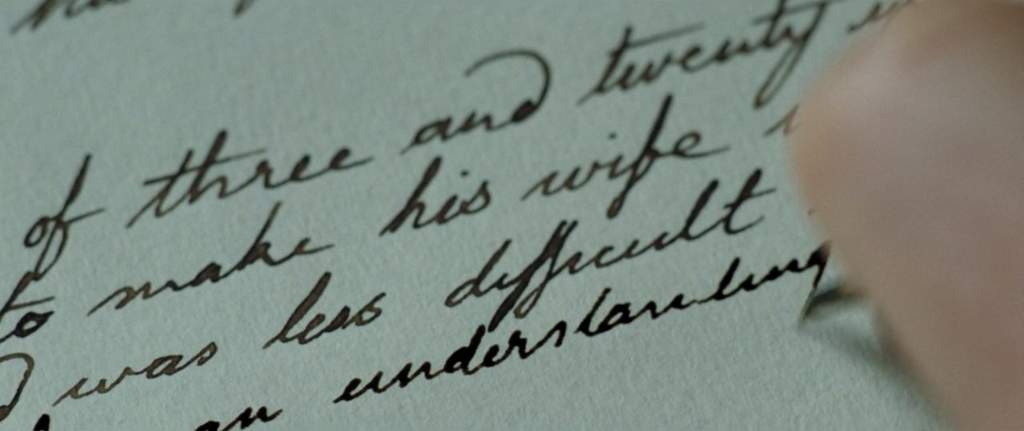 of three and twenty
to make his wife
was less difficult
an understanding